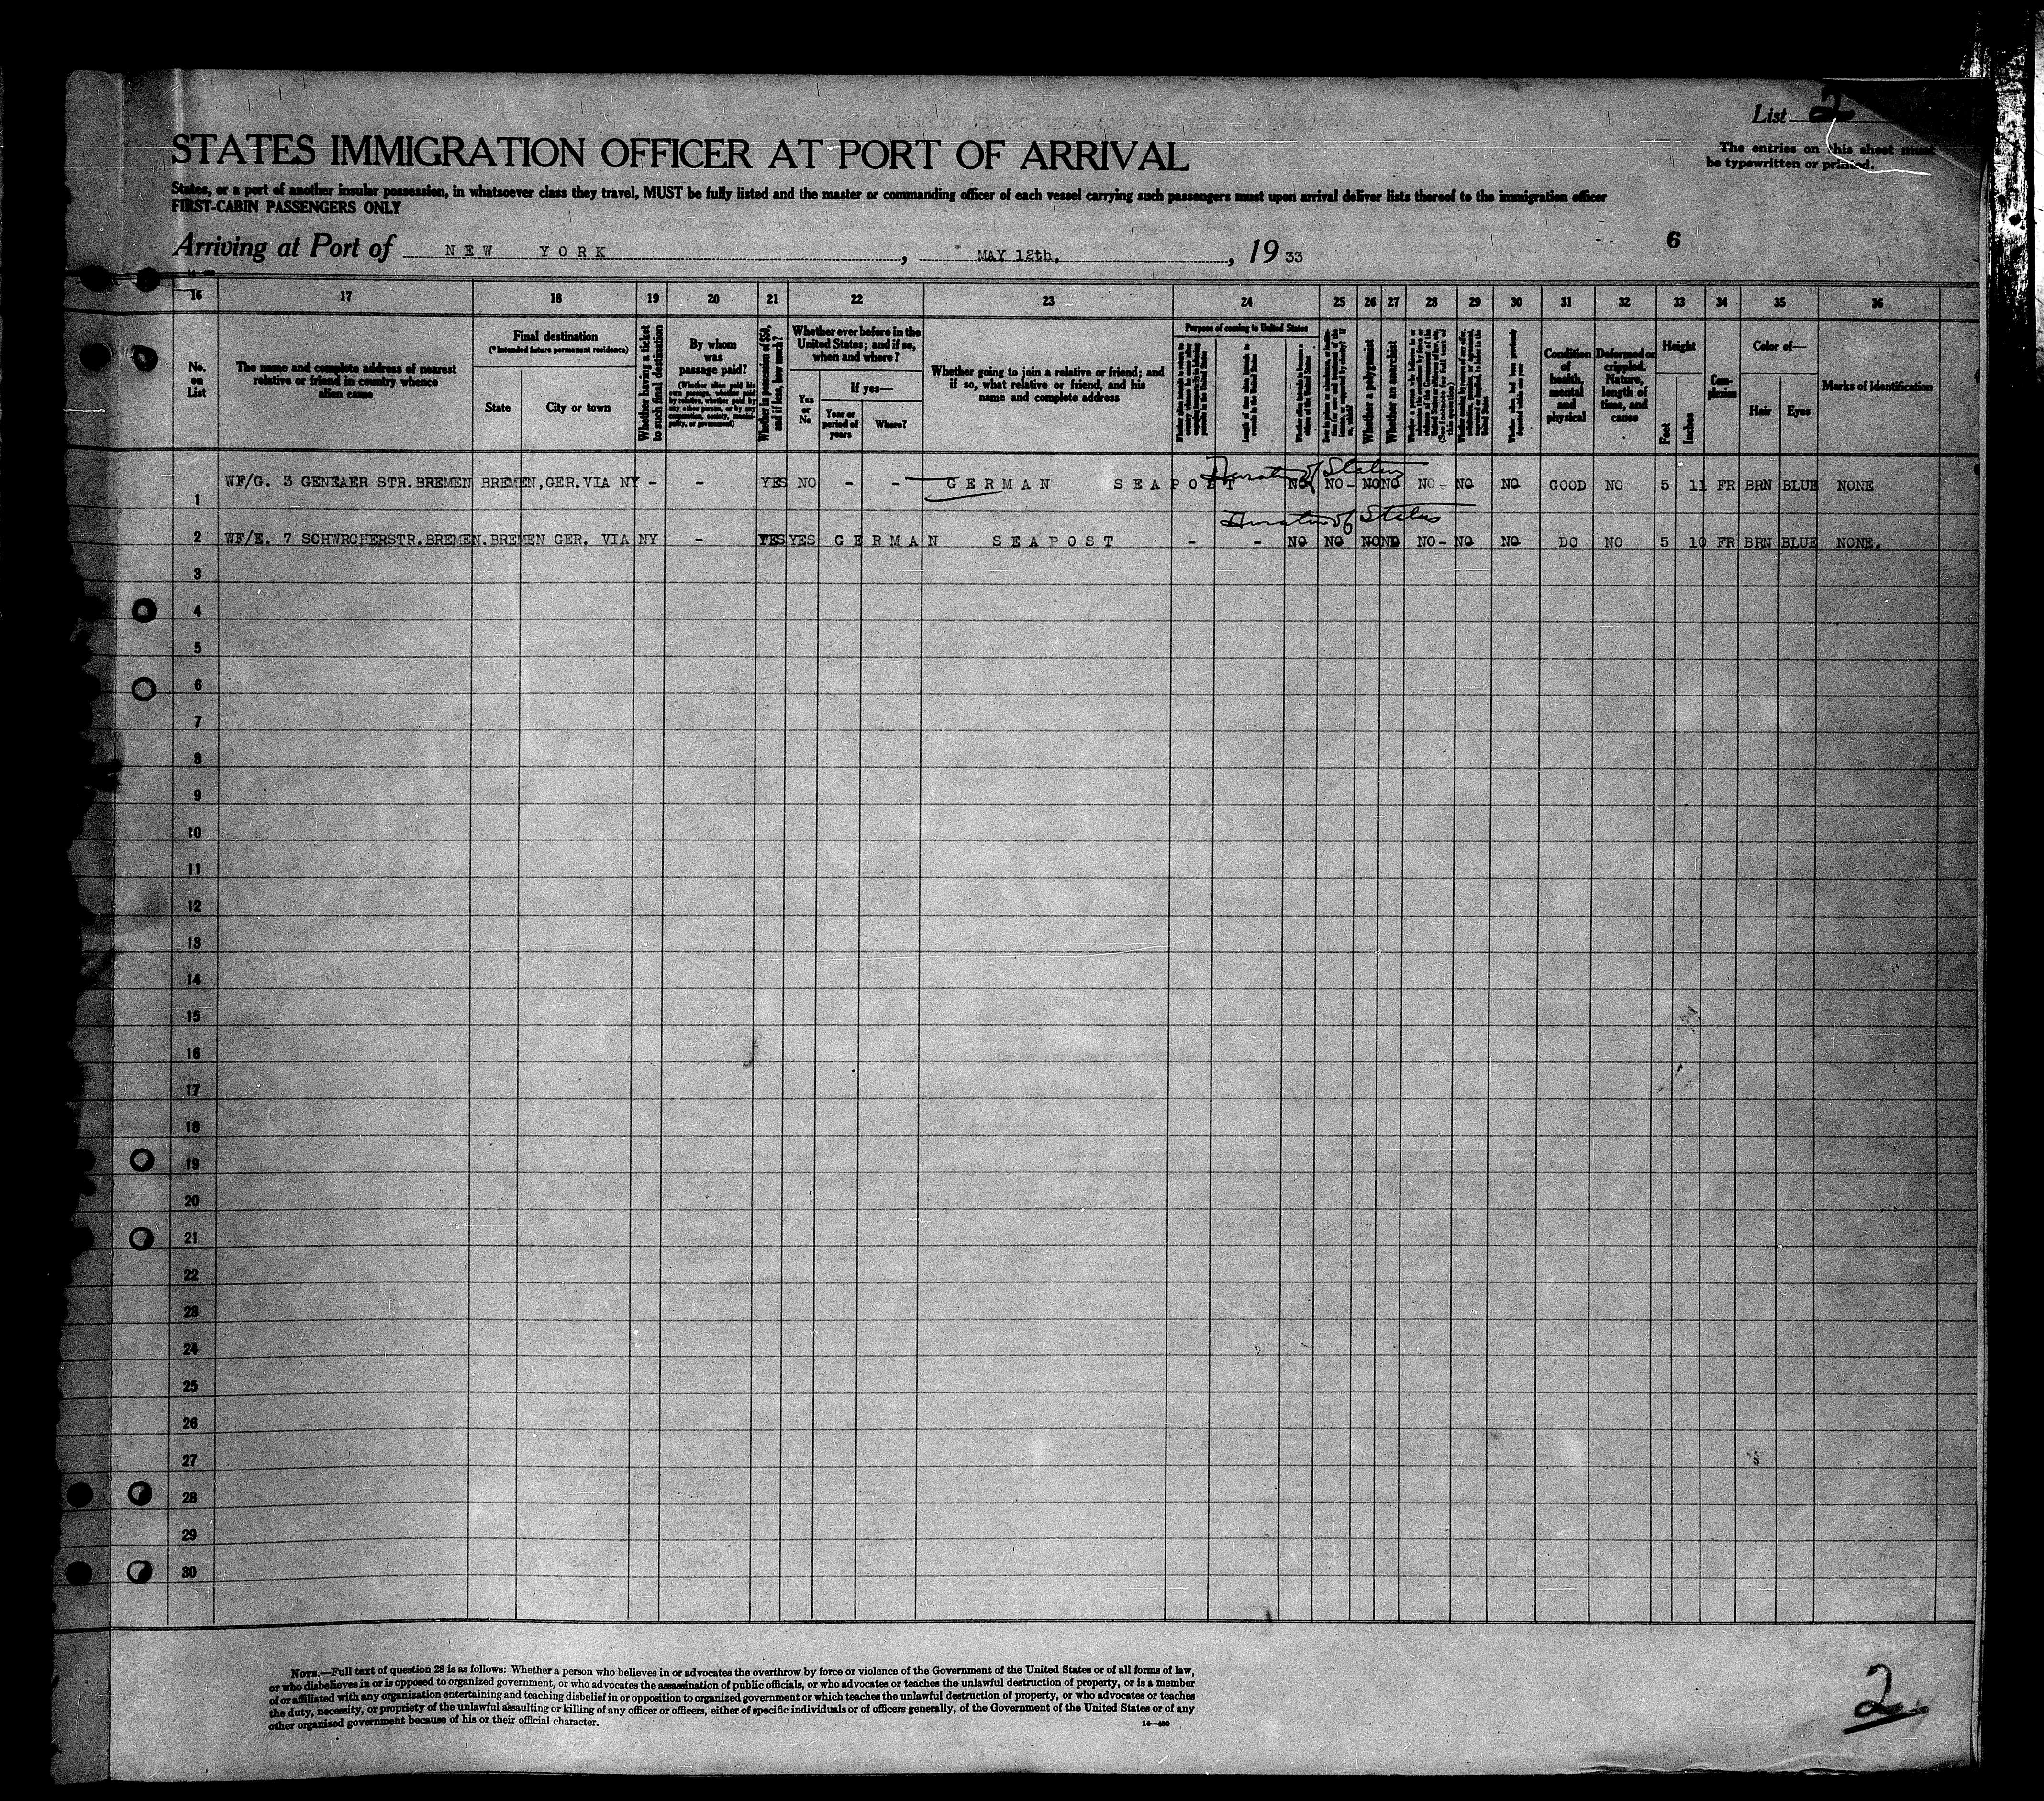 List 2
STATES IMMIGRATION OFFICER AT PORT OF ARRIVAL
The entries on this sheet must
be typewritten or printed.
States, or a port of another insular possession, in whatsoever class they travel, MUST be fully listed and the master or commanding officer of each vessel carrying such passengers must upon arrival deliver lists thereof to the immigration officer
FIRST-CABIN PASSENGERS ONLY
Arriving at Port of NEW YORK, MAY 12th, 19 33
6
16 17 18 19 20 21 22 23 24 25 26 27 28 29 30 31 32 33 34 35 36
No.
on
List
The name and complete address of nearest
relative or friend in country whence
alien came
Final destination
(*Intended future permanent residence)
State
City or town
Whether having a ticket
to such final destination
By whom
was
passage paid?
(Whether alien paid his
own passage, whether paid
by relative, whether paid by
any other person, or by any
corporation, society, munici-
pality, or government)
Whether in possession of $50,
and if less, how much?
Whether ever before in the
United States; and if so,
when and where?
Yes
or
No
If yes—
Year or
period of
years
Where?
Whether going to join a relative or friend; and
if so, what relative or friend, and his
name and complete address
Purpose of coming to United States
Length of time alien intends to
remain in the United States
Whether alien intends to become a
citizen of the United States
Whether a polygamist
Whether an anarchist
Whether alien had been previously
deported within one year
Condition
of
health,
mental
and
physical
Deformed or
crippled.
Nature,
length of
time, and
cause
Height
Feet
Inches
Com-
plexion
Color of—
Hair
Eyes
Marks of identification
Duration of Status
1 WF/G. 3 GENEAER STR.BREMEN BREMEN,GER.VIA NY - - YES NO - - GERMAN SEAPOST NO NO - NO NO NO - NO NO GOOD NO 5 11 FR BRN BLUE NONE
Duration of Status
2 WF/E. 7 SCHWRCHERSTR.BREMEN.BREMEN GER. VIA NY - YES YES GERMAN SEAPOST - - NO NO NO NO NO - NO NO DO NO 5 10 FR BRN BLUE NONE.
3
4
5
6
7
8
9
10
11
12
13
14
15
16
17
18
19
20
21
22
23
24
25
26
27
28
29
30
NOTE.—Full text of question 28 is as follows: Whether a person who believes in or advocates the overthrow by force or violence of the Government of the United States or of all forms of law,
or who disbelieves in or is opposed to organized government, or who advocates the assassination of public officials, or who advocates or teaches the unlawful destruction of property, or is a member
of or affiliated with any organization entertaining and teaching disbelief in or opposition to organized government or which teaches the unlawful destruction of property, or who advocates or teaches
the duty, necessity, or propriety of the unlawful assaulting or killing of any officer or officers, either of specific individuals or of officers generally, of the Government of the United States or of any
other organized government because of his or their official character.
14—480
2